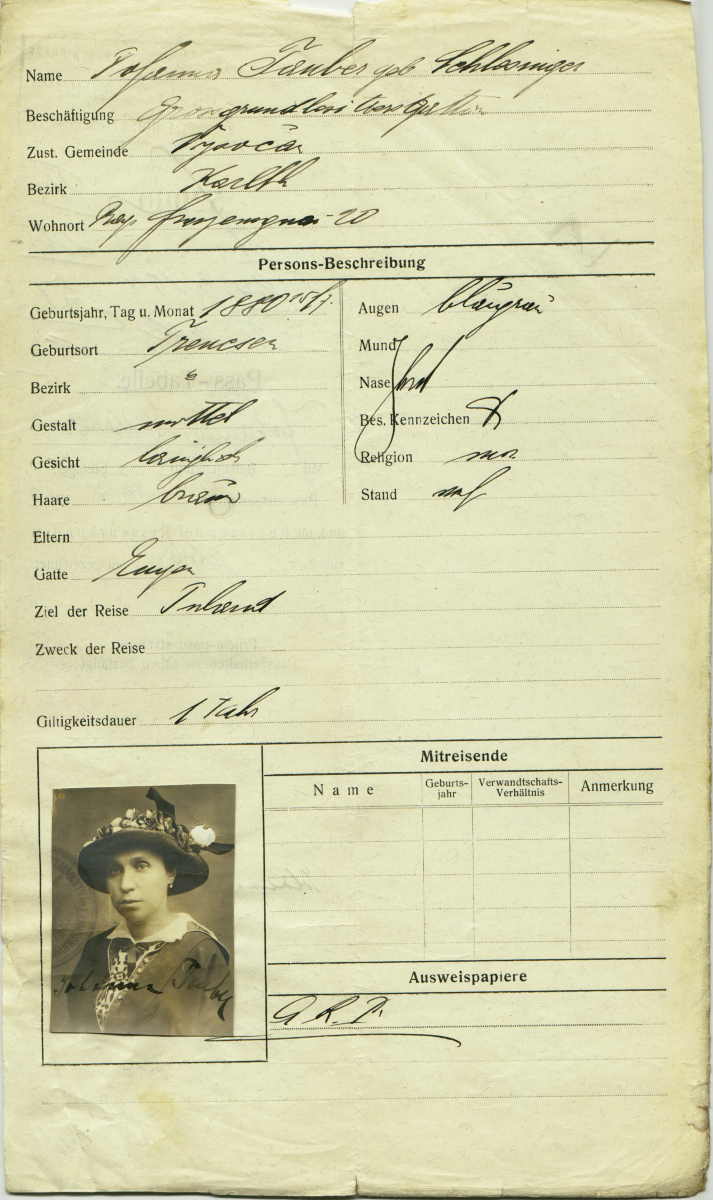 Name Johanna Tauber geb Schlesinger
Beschäftigung Grossgrundbesitzersgattin
Zust. Gemeinde
Bezirk
Wohnort 20
Persons-Beschreibung
Geburtsjahr, Tag u. Monat 1880
Geburtsort Trencsen
Bezirk "
Gestalt mittel
Gesicht länglich
Haare braun
Augen blaugrau
Mund
Nase
Bes. Kennzeichen
Religion mos
Stand
Eltern
Gatte Eugen
Ziel der Reise Inland
Zweck der Reise
Giltigkeitsdauer 1 Jahr
Mitreisende
Name Geburts-jahr Verwandtschafts-Verhältnis Anmerkung
Ausweispapiere
Johanna Tauber